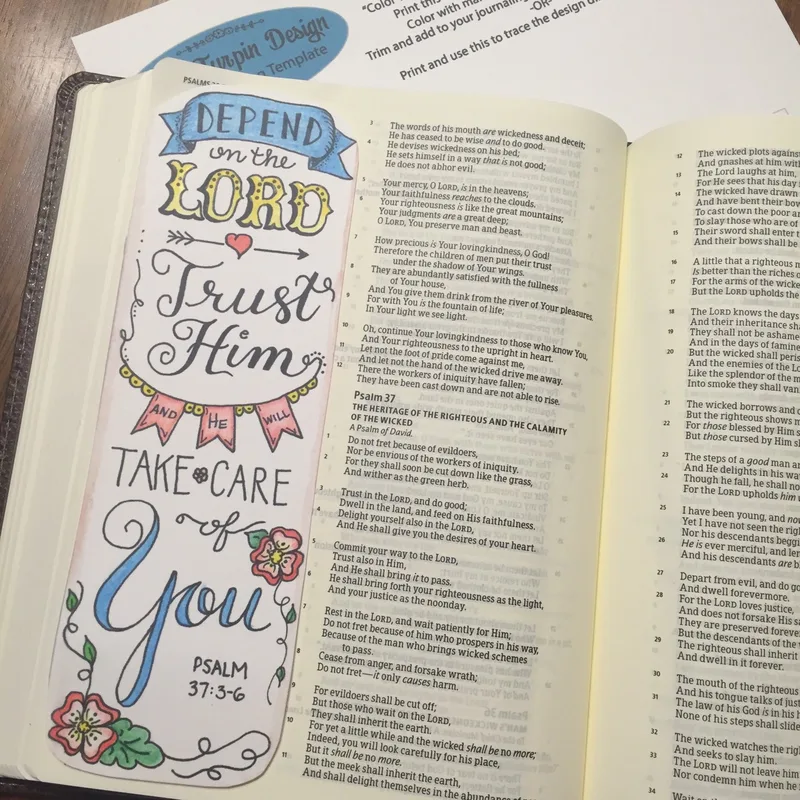 Turpin Design
Template
"Color
Print this
Color with
Trim and add to your journaling
-OR-
Print and use this to trace the design
DEPEND
on the
LORD
Trust
Him
AND HE WILL
TAKE CARE
of
You
PSALM
37:3-6
PSALMS
3 The words of his mouth are wickedness and deceit;
He has ceased to be wise and to do good.
4 He devises wickedness on his bed;
He sets himself in a way that is not good;
He does not abhor evil.
5 Your mercy, O LORD, is in the heavens;
Your faithfulness reaches to the clouds.
6 Your righteousness is like the great mountains;
Your judgments are a great deep;
O LORD, You preserve man and beast.
7 How precious is Your lovingkindness, O God!
Therefore the children of men put their trust
under the shadow of Your wings.
8 They are abundantly satisfied with the fullness
of Your house,
And You give them drink from the river of Your pleasures.
9 For with You is the fountain of life;
In Your light we see light.
10 Oh, continue Your lovingkindness to those who know You,
And Your righteousness to the upright in heart.
11 Let not the foot of pride come against me,
And let not the hand of the wicked drive me away.
12 There the workers of iniquity have fallen;
They have been cast down and are not able to rise.
Psalm 37
THE HERITAGE OF THE RIGHTEOUS AND THE CALAMITY
OF THE WICKED
A Psalm of David.
1 Do not fret because of evildoers,
Nor be envious of the workers of iniquity.
2 For they shall soon be cut down like the grass,
And wither as the green herb.
3 Trust in the LORD, and do good;
Dwell in the land, and feed on His faithfulness.
4 Delight yourself also in the LORD,
And He shall give you the desires of your heart.
5 Commit your way to the LORD,
Trust also in Him,
And He shall bring it to pass.
6 He shall bring forth your righteousness as the light,
And your justice as the noonday.
7 Rest in the LORD, and wait patiently for Him;
Do not fret because of him who prospers in his way,
Because of the man who brings wicked schemes
to pass.
8 Cease from anger, and forsake wrath;
Do not fret—it only causes harm.
9 For evildoers shall be cut off;
But those who wait on the LORD,
They shall inherit the earth.
10 For yet a little while and the wicked shall be no more;
Indeed, you will look carefully for his place,
But it shall be no more.
11 But the meek shall inherit the earth,
And shall delight themselves in the abundance of
12 The wicked plots against
And gnashes at him with
13 The Lord laughs at him,
For He sees that his day
14 The wicked have drawn
And have bent their bow
To cast down the poor
To slay those who are of
15 Their sword shall enter
And their bows shall be
16 A little that a righteous
Is better than the riches
17 For the arms of the wicked
But the LORD upholds the
18 The LORD knows the days
And their inheritance
19 They shall not be ashamed
And in the days of famine
20 But the wicked shall perish
And the enemies of the
Like the splendor of the
Into smoke they shall
21 The wicked borrows and
But the righteous shows
22 For those blessed by Him
But those cursed by Him
23 The steps of a good man
And He delights in his way
24 Though he fall, he shall
For the LORD upholds him
25 I have been young, and
Yet I have not seen the
Nor his descendants
26 He is ever merciful, and
And his descendants are
27 Depart from evil, and do
And dwell forevermore.
28 For the LORD loves justice,
And does not forsake His
They are preserved forever
But the descendants of the
29 The righteous shall inherit
And dwell in it forever.
30 The mouth of the righteous
And his tongue talks of
31 The law of his God is in his
None of his steps shall slide
32 The wicked watches the
And seeks to slay him.
33 The LORD will not leave him
Nor condemn him when he
34 Wait